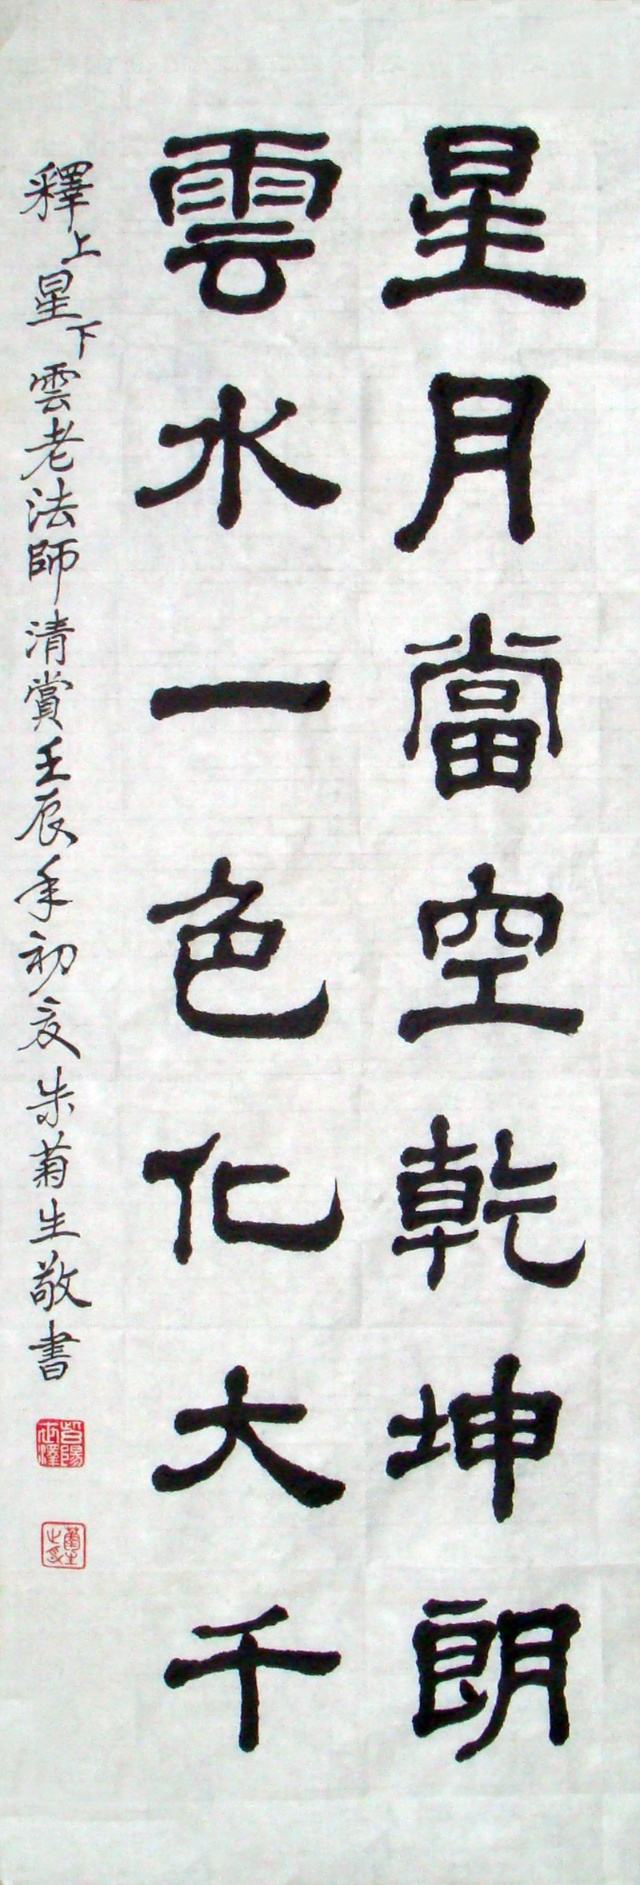 星月當空乾坤朗
雲水一色化大千
釋上星下雲老法師清賞壬辰年初夏朱菊生敬書